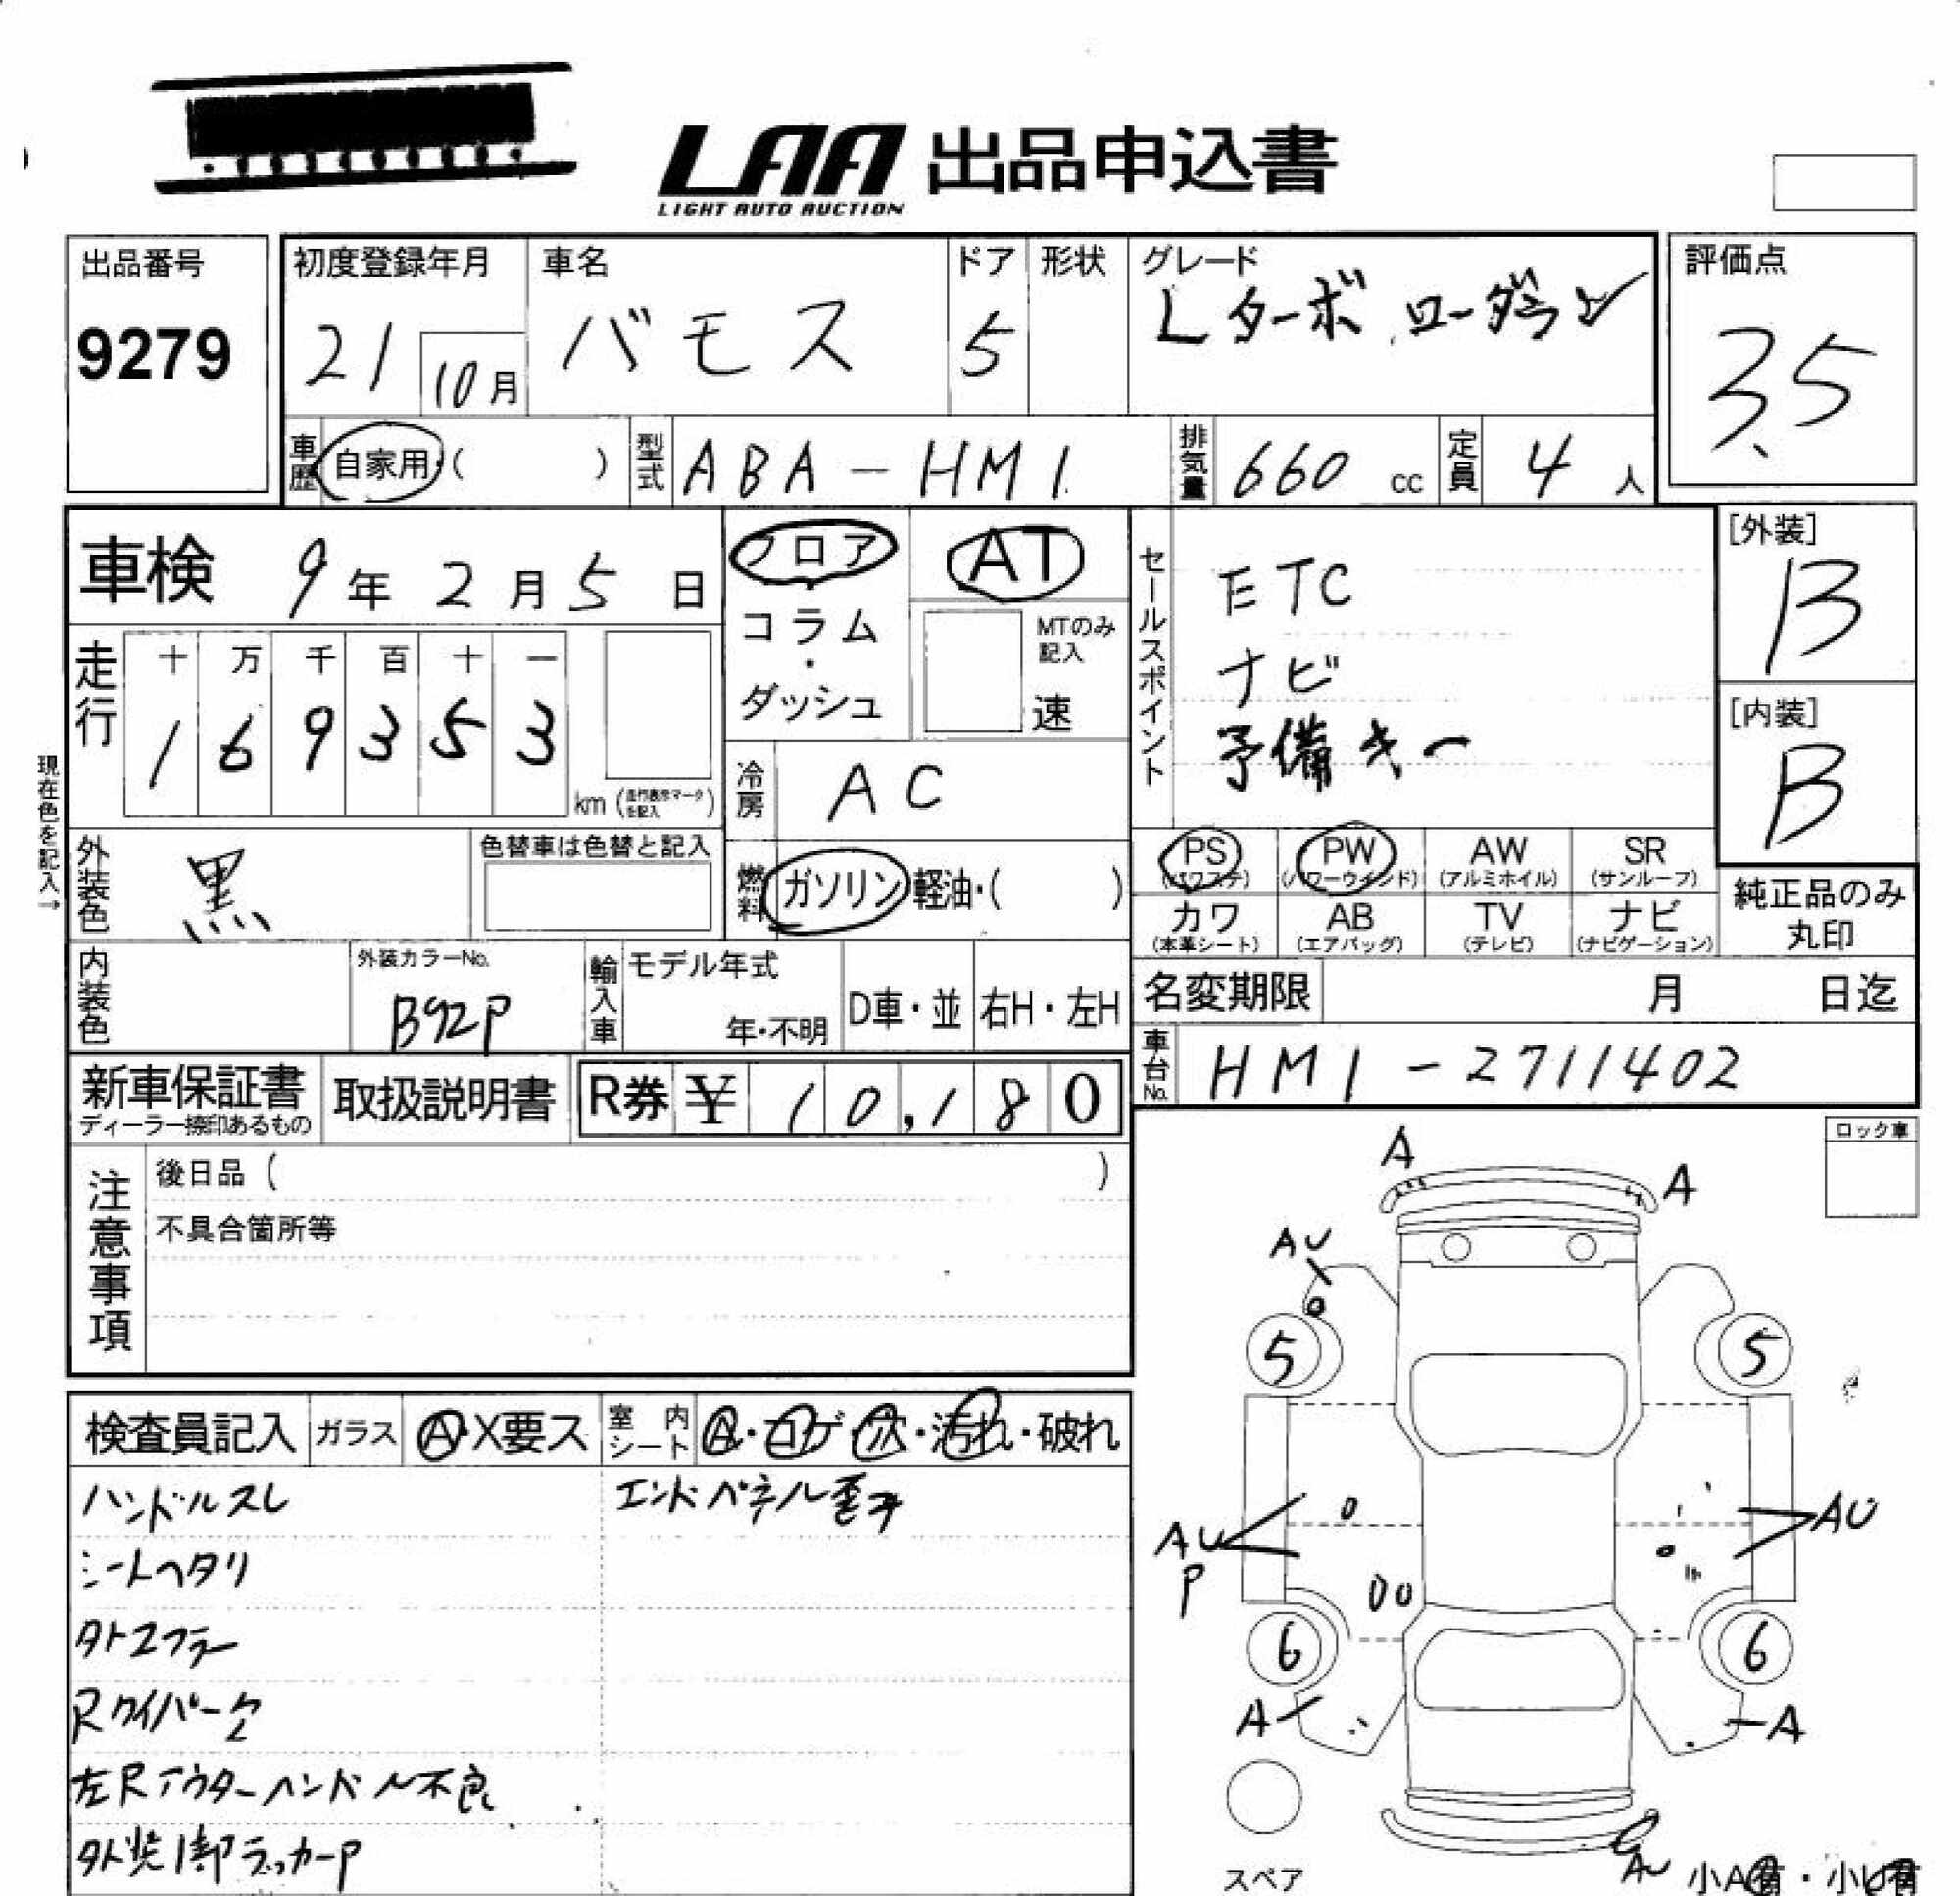 LAA 出品申込書
LIGHT AUTO AUCTION
出品番号
9279
初度登録年月
21 10月
車名
バモス
ドア
5
形状
グレード
Lターボ ローダウン
評価点
3.5
車歴 自家用・( )
型式 ABA-HM1
排気量 660 cc
定員 4 人
車検 9年 2月 5日
フロア・コラム・ダッシュ
AT
MTのみ記入
速
セールスポイント
ETC
ナビ
予備キー
[外装]
B
[内装]
B
走行
十 万 千 百 十 一
1 6 9 3 5 3
km (走行表示マークを記入)
現在色を記入→
冷房 AC
外装色 黒
色替車は色替と記入
燃料 ガソリン・軽油・( )
PS (パワステ)
PW (パワーウインド)
AW (アルミホイル)
SR (サンルーフ)
カワ (本革シート)
AB (エアバッグ)
TV (テレビ)
ナビ (ナビゲーション)
純正品のみ丸印
内装色
外装カラーNo.
B92P
輸入車
モデル年式
年・不明
D車・並
右H・左H
名変期限 月 日迄
車台No. HM1-2711402
新車保証書
ディーラー捺印あるもの
取扱説明書
R券 ¥ 10,180
注意事項
後日品 ( )
不具合箇所等
ロック車
A
A
AU
5
5
AU
P
AU
6
6
A
A
AU
スペア
小A有・小U有
検査員記入
ガラス A・X要ス
室内シート A・コゲ・穴・汚れ・破れ
ハンドルスレ
シートヘタリ
タトマフラー
Rワイパー欠
左Rアウターハンドル不良
外装1部ラッカーP
エンドパネル歪み